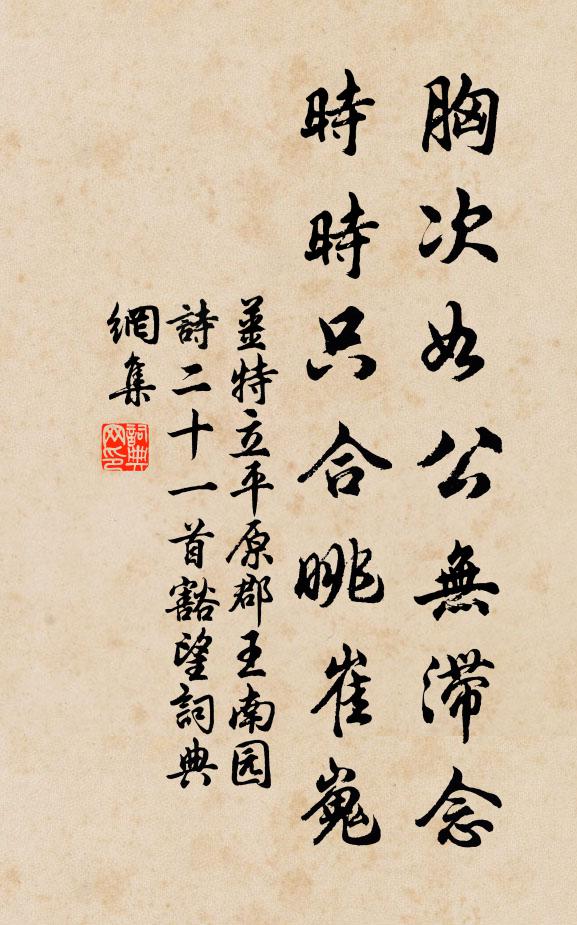 胸次如公無滯念
時時只合眺崔嵬
姜特立平原郡王南园
詩二十一首豁望詞典
網集
詞典
网印